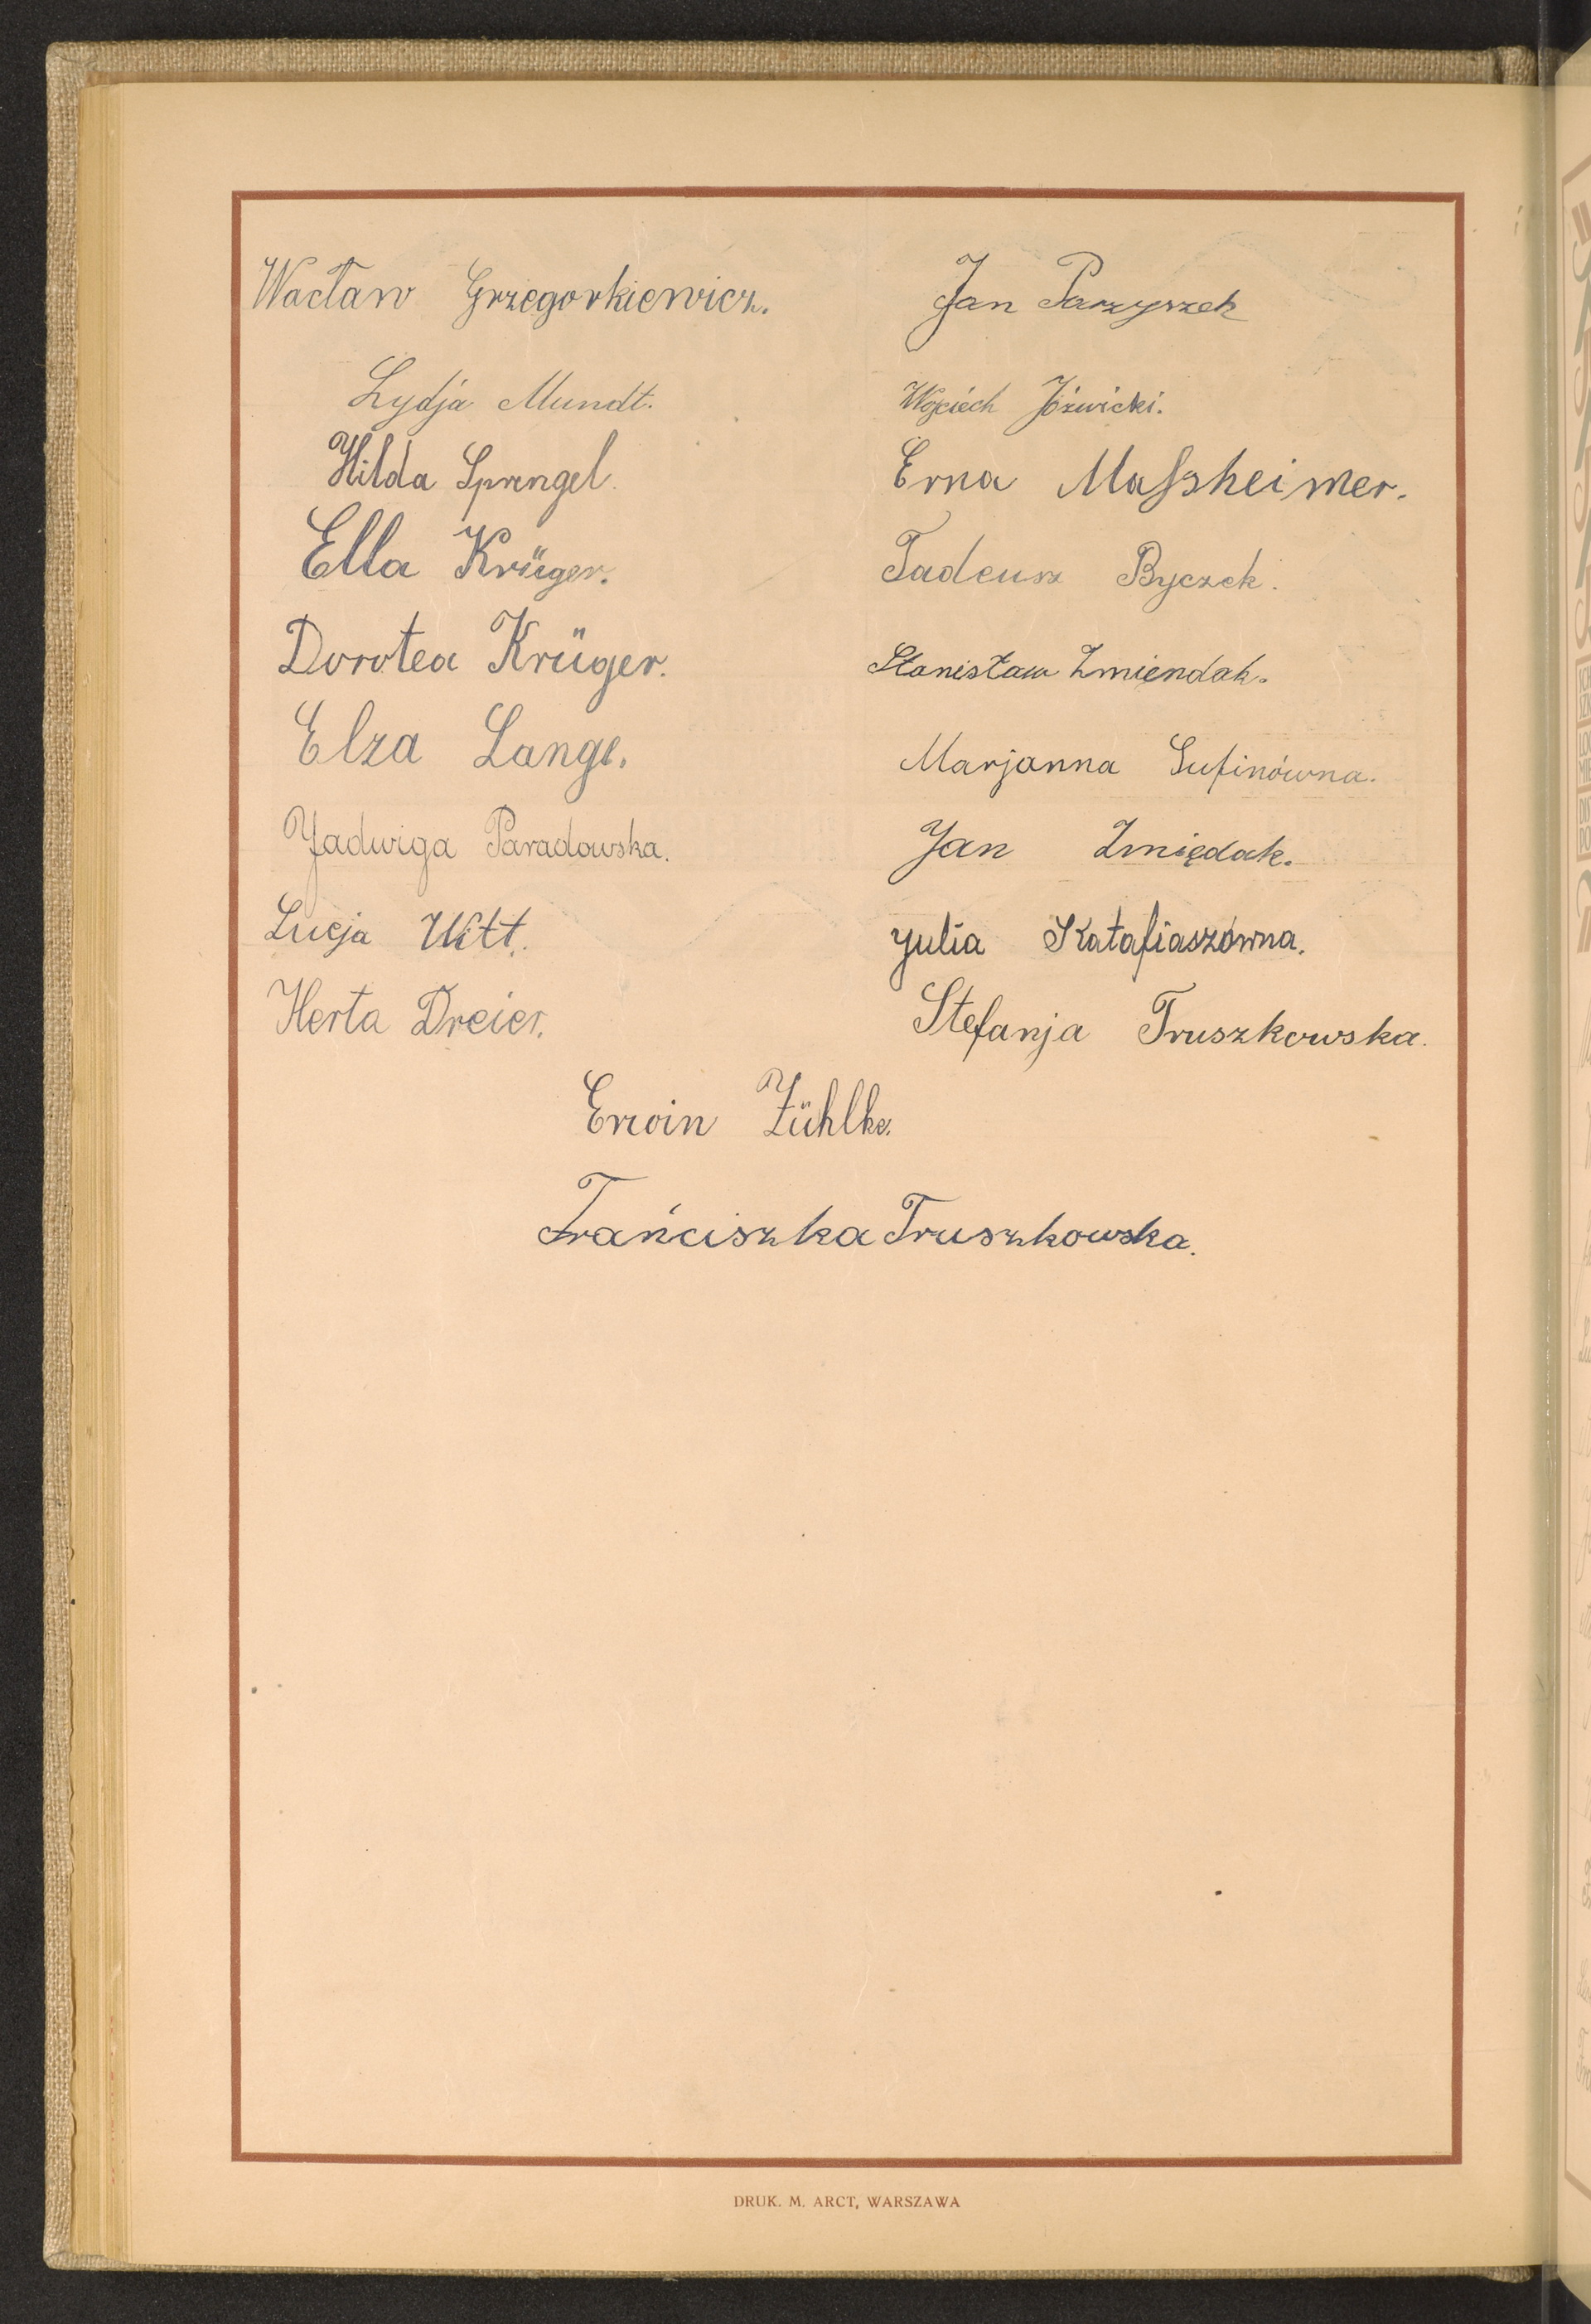 Wacław Grzegorkiewicz.
Lydja Mundt.
Hilda Sprengel.
Ella Krüger.
Dorotea Krüger.
Elza Lange.
Jadwiga Paradowska.
Lucja Witt.
Herta Dreier.
Jan Parzyszek
Wojciech Jóźwicki.
Erna Maßheimer.
Tadeusz Byczek.
Stanisław Zmiendak.
Marjanna Sufinówna.
Jan Zmiędak.
Julia Katafiaszówna.
Stefanja Truszkowska.
Erwin Zühlke.
Frańciszka Truszkowska.
DRUK. M. ARCT, WARSZAWA